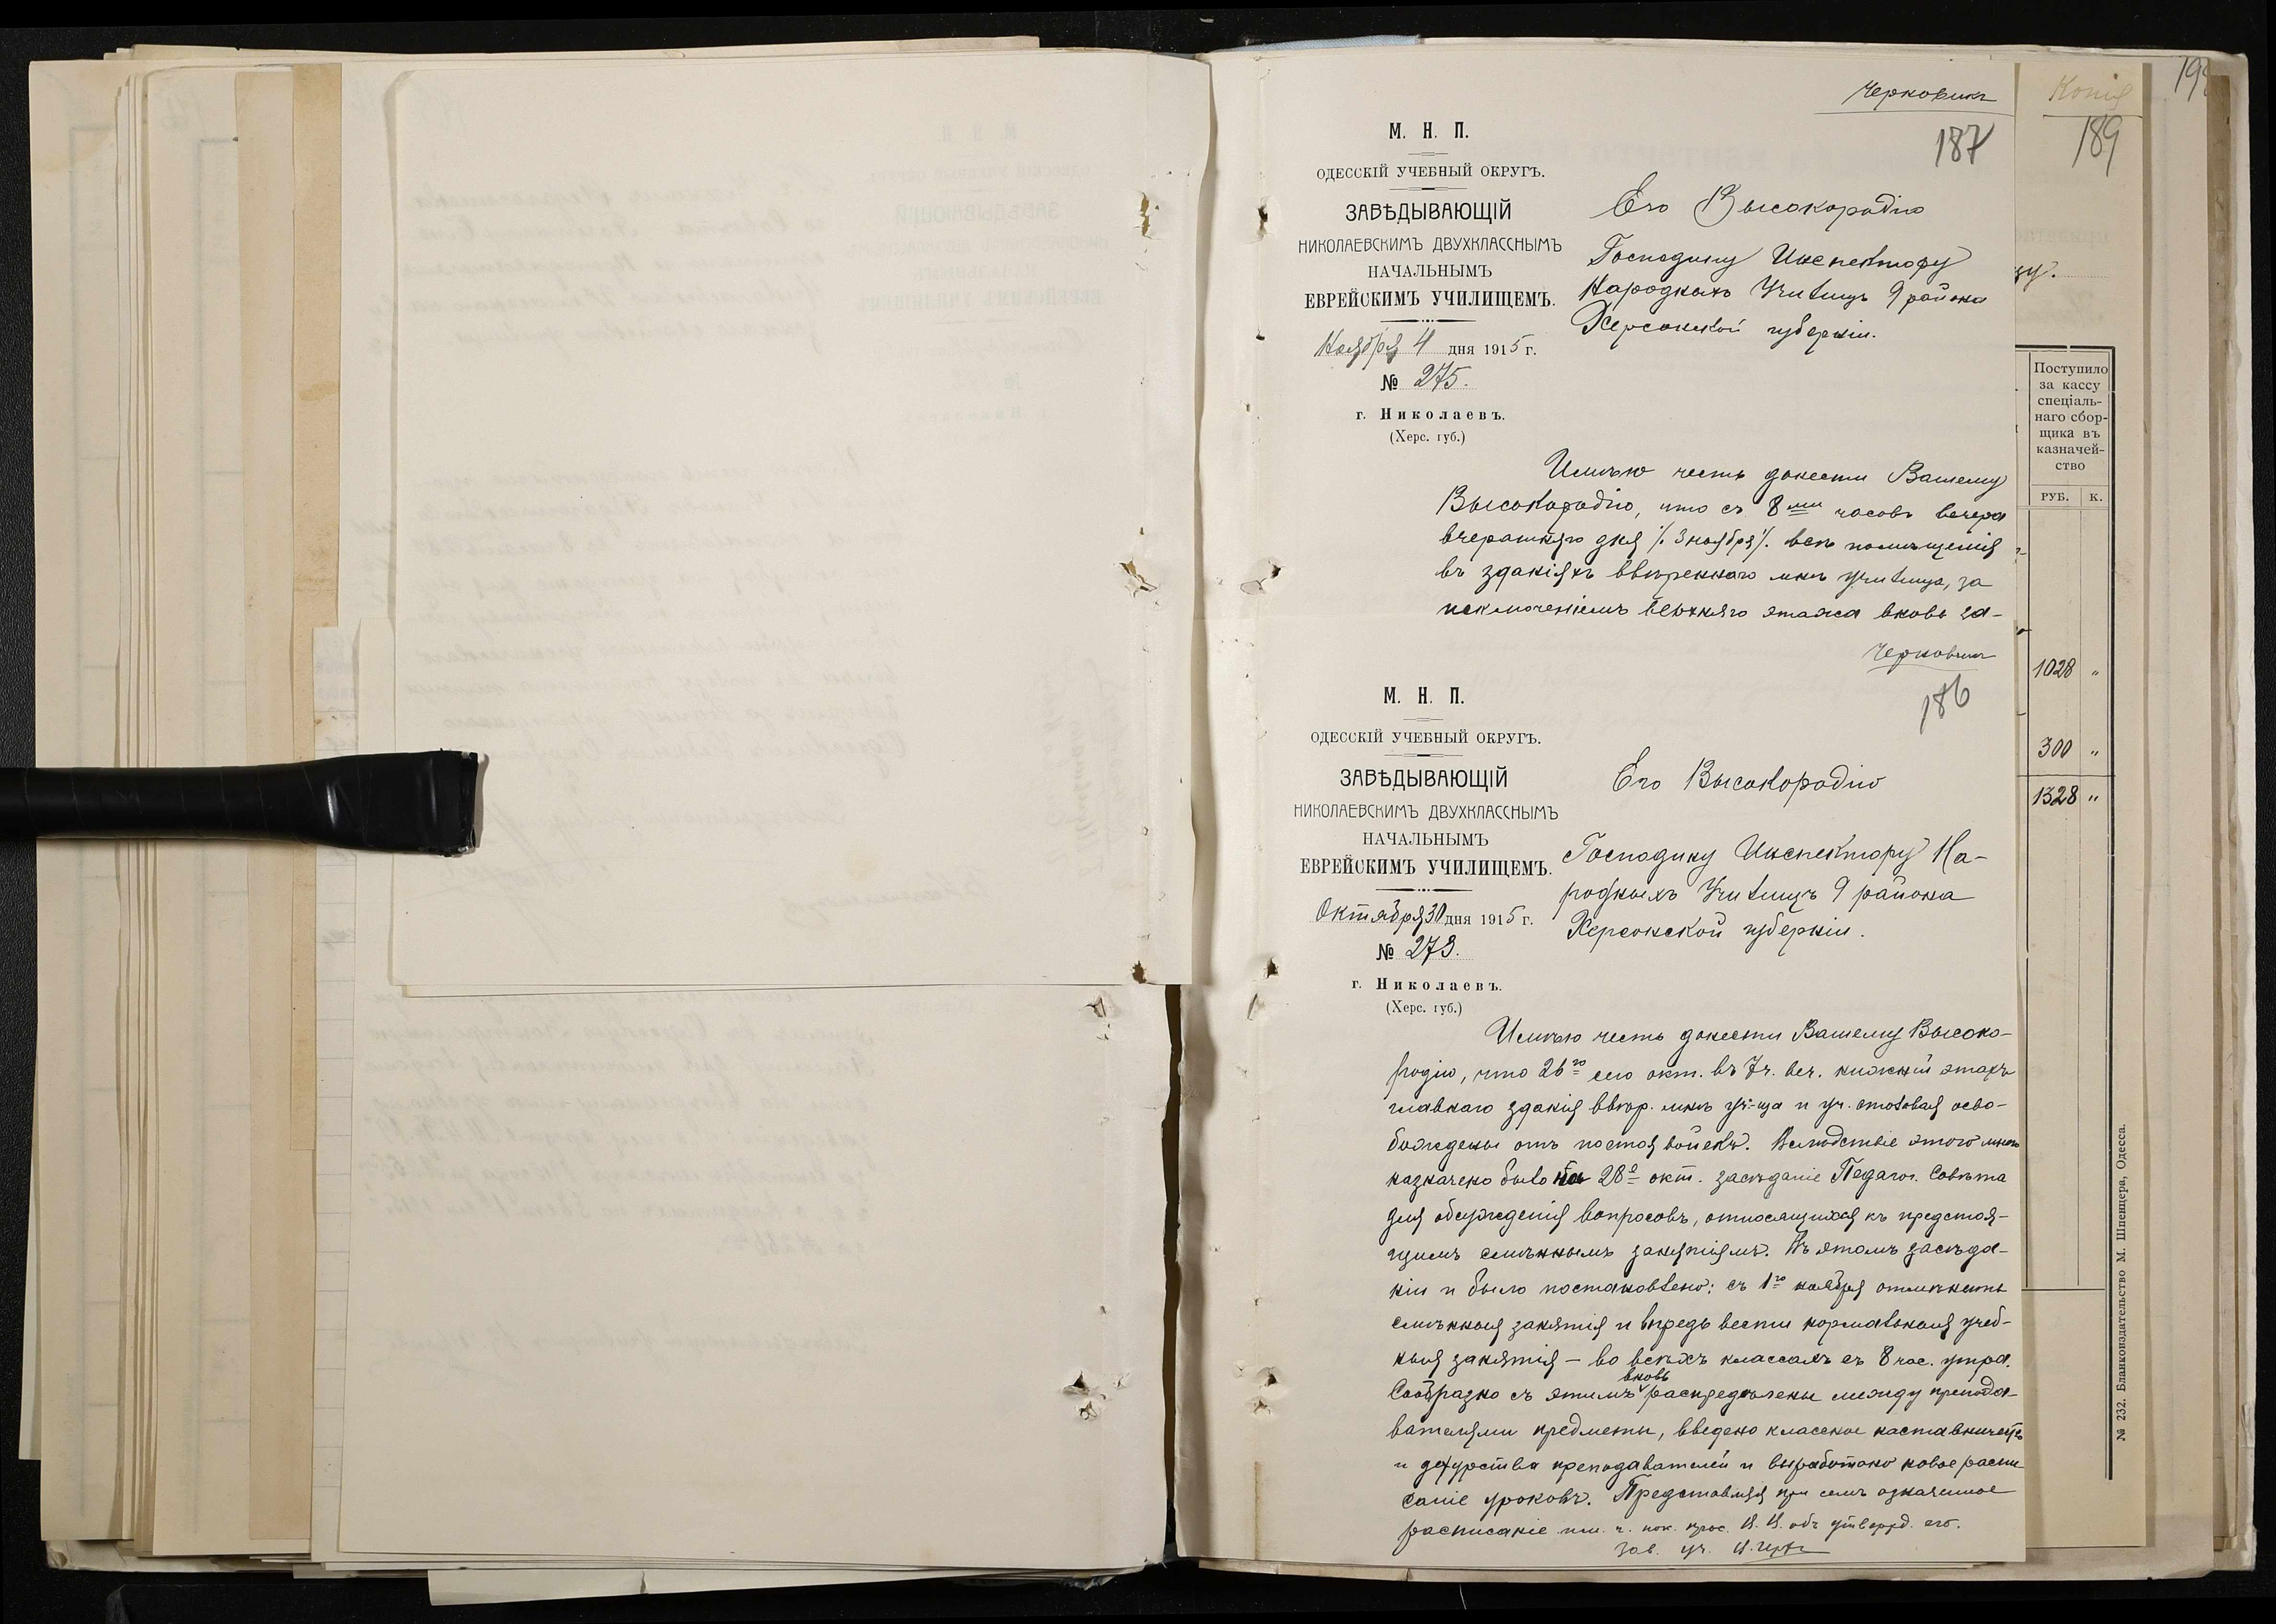 Черновикъ
187
М. Н. П.
ОДЕССКІЙ УЧЕБНЫЙ ОКРУГЪ.
ЗАВѢДЫВАЮЩІЙ
НИКОЛАЕВСКИМЪ ДВУХКЛАССНЫМЪ
НАЧАЛЬНЫМЪ
ЕВРЕЙСКИМЪ УЧИЛИЩЕМЪ.
Ноября 4 дня 1915 г.
№ 275.
г. Николаевъ.
(Херс. губ.)
Его Высокородію
Господину Инспектору
Народныхъ Училищъ 9 района
Херсонской губерніи.
Имѣю честь донести Вашему
Высокородію, что съ 8ми часовъ вечера
вчерашняго дня /. 3 ноября /. всѣ помѣщенія
въ зданіяхъ ввѣреннаго мнѣ училища, за
исключеніемъ верхняго этажа вновь за-
Черновикъ
186
М. Н. П.
ОДЕССКІЙ УЧЕБНЫЙ ОКРУГЪ.
ЗАВѢДЫВАЮЩІЙ
НИКОЛАЕВСКИМЪ ДВУХКЛАССНЫМЪ
НАЧАЛЬНЫМЪ
ЕВРЕЙСКИМЪ УЧИЛИЩЕМЪ.
Октября 30 дня 1915 г.
№ 273.
г. Николаевъ.
(Херс. губ.)
Его Высокородію
Господину Инспектору На-
родныхъ Училищъ 9 района
Херсонской губерніи.
Имѣю честь донести Вашему Высоко-
родію, что 26го сего окт. въ 7 ч. веч. нижній этажъ
главнаго зданія ввѣр. мнѣ уч-ща и уч. столовая осво-
бождены отъ постоя войскъ. Вслѣдствіе этого мною
назначено было на 28е окт. засѣданіе Педагог. Совѣта
для обсужденія вопросовъ, относящихся къ предстоя-
щимъ смѣннымъ занятіямъ. Въ этомъ засѣда-
ніи и было постановлено: съ 1го ноября отмѣнить
смѣнныя занятія и впредь вести нормальныя учеб-
ныя занятія — во всѣхъ классахъ съ 8 час. утра.
Сообразно съ этимъ вновь распредѣлены между препода-
вателями предметы, введено классное наставничест.
и дежурства преподавателей и выработано новое распи-
саніе уроковъ. Представляя при семъ означенное
расписаніе им. ч. пок. прос. В. В. объ утвержд. его.
Зав. уч.
Копія
189
цу.
Поступило
за кассу
спеціаль-
наго сбор-
щика въ
казначей-
ство
РУБ. К.
1028 "
300 "
1328 "
№ 232. Бланкоиздательство М. Шпенцера, Одесса.